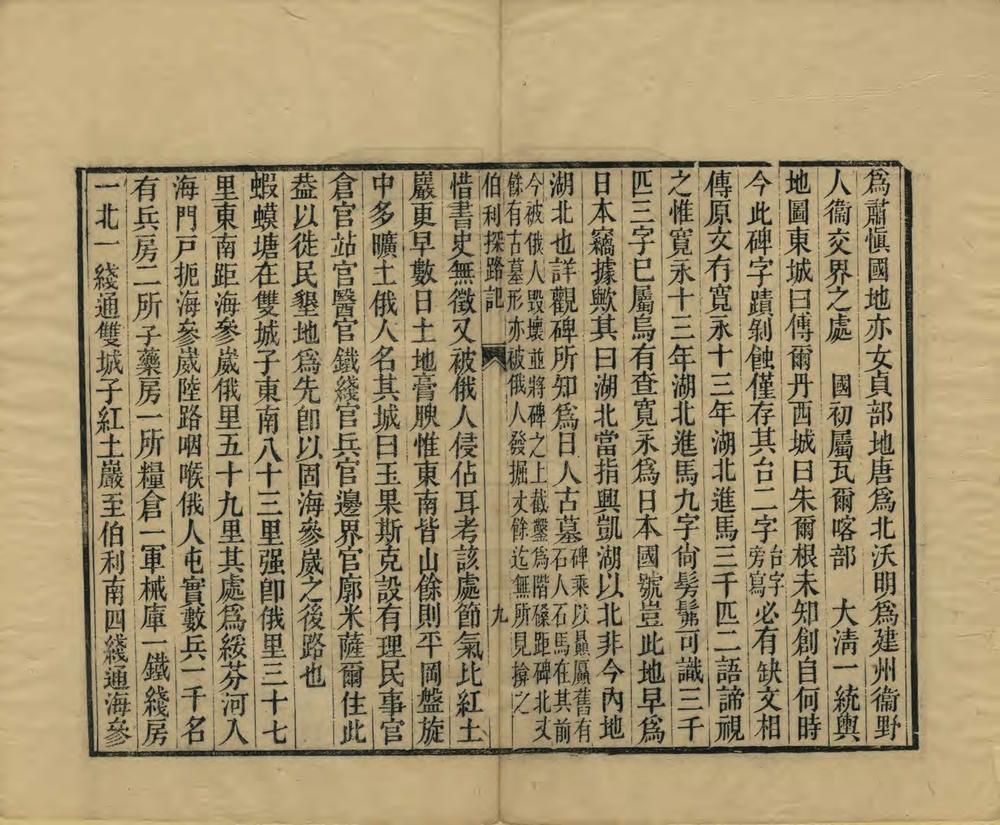 爲肅愼國地亦女貞部地唐爲北沃明爲建州衞野
人衞交界之處　國初屬瓦爾喀部　大淸一統輿
地圖東城曰傅爾丹西城曰朱爾根未知創自何時
今此碑字蹟剝蝕僅存其台二字台字旁寫必有缺文相
傳原文有寬永十三年湖北進馬三千匹二語諦視
之惟寬永十三年湖北進馬九字尙髣髴可識三千
匹三字已屬烏有查寬永爲日本國號豈此地早爲
日本竊據歟其曰湖北當指興凱湖以北非今內地
湖北也詳觀碑所知爲日人古墓碑乘以贔屭舊有石人石馬在其前
今被俄人毀壞並將碑之上截鑿爲階磉距碑北丈
餘有古墓形亦被俄人發掘丈餘迄無所見揜之
伯利探路記　九
惜書史無徵又被俄人侵佔耳考該處節氣比紅土
巖更早數日土地膏腴惟東南皆山餘則平岡盤旋
中多曠土俄人名其城曰玉果斯克設有理民事官
倉官站官醫官鐵綫官兵官邊界官廓米薩爾住此
葢以徙民墾地爲先卽以固海參崴之後路也
蝦蟆塘在雙城子東南八十三里强卽俄里三十七
里東南距海參崴俄里五十九里其處爲綏芬河入
海門戸扼海參崴陸路咽喉俄人屯實數兵一千名
有兵房二所子藥房一所糧倉一軍械庫一鐵綫房
一北一綫通雙城子紅土巖至伯利南四綫通海參